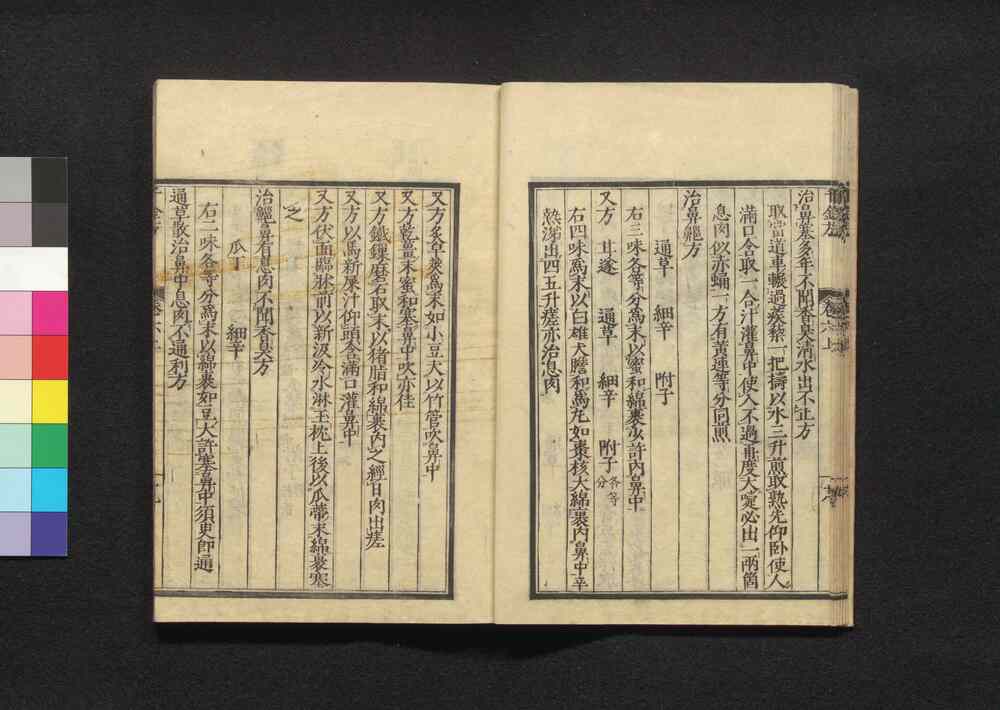 治鼻塞多年不聞香臭清水出不止方
取當道車輾過蒺藜一把擣以水三升煎取熟先仰臥使人
滿口含取一合汁灌鼻中使入不過再度大嚏必出一兩箇
息肉似赤蛹一方有黃連等分同煎
治鼻齆方
通草 細辛 附子
右三味各等分爲末以蜜和綿裹少許內鼻中
又方 甘遂 通草 細辛 附子各等分
右四味爲末以白雄犬膽和爲丸如棗核大綿裹內鼻中辛
熱涕出四五升瘥亦治息肉
又方炙皁莢爲末如小豆大以竹管吹鼻中
又方乾薑末蜜和塞鼻中吹亦佳
又方鐵鏁磨石取末以猪脂和綿裹內之經日肉出瘥
又方以馬新屎汁仰頭含滿口灌鼻中
又方伏面臨牀前以新汲冷水淋玉枕上後以瓜蔕末綿裹塞
之
治齆鼻有息肉不聞香臭方
瓜丁 細辛
右二味各等分爲末以綿裹如豆大許塞鼻中須臾卽通
通草散治鼻中息肉不通利方
卷六上